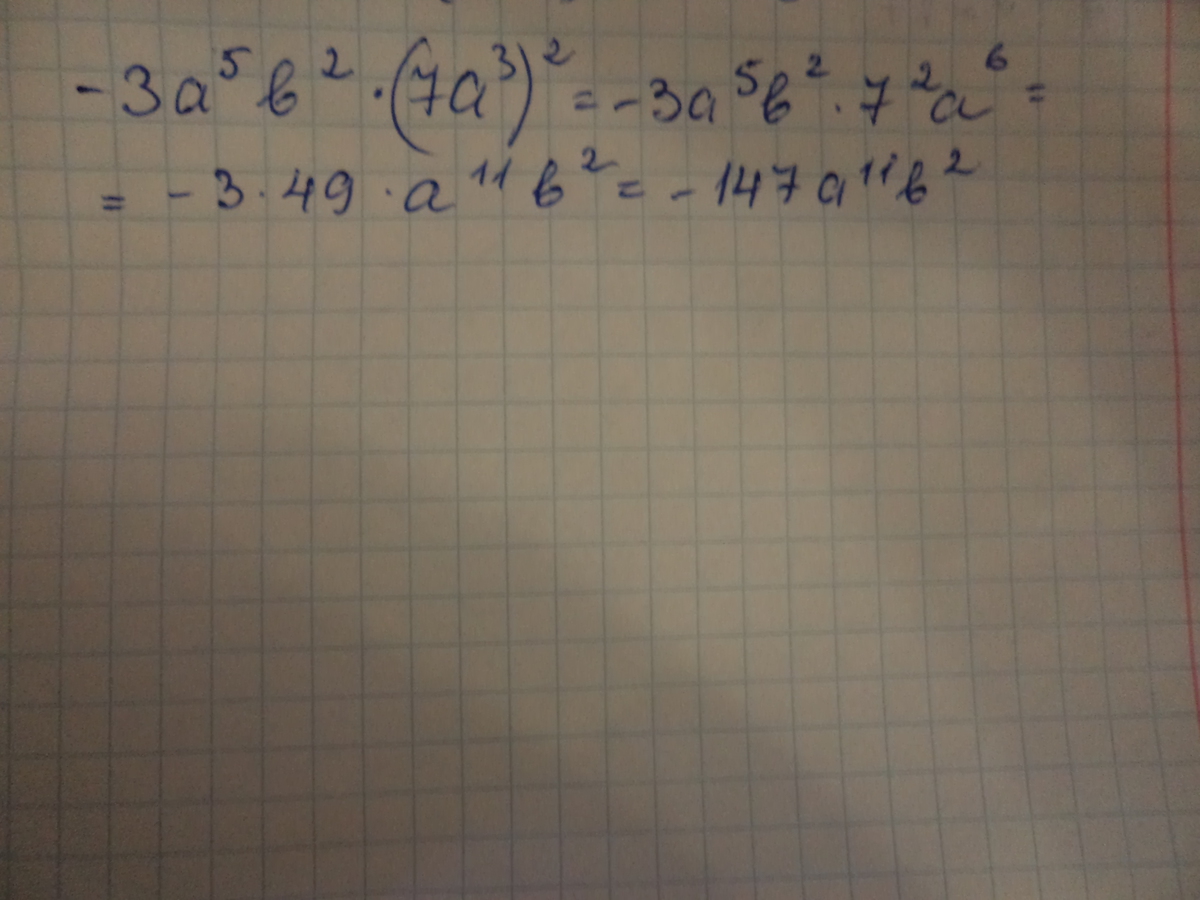 -3a⁵b²·(7a³)²=-3a⁵b²·7²a⁶=
=-3·49·a¹¹b²=-147a¹¹b²